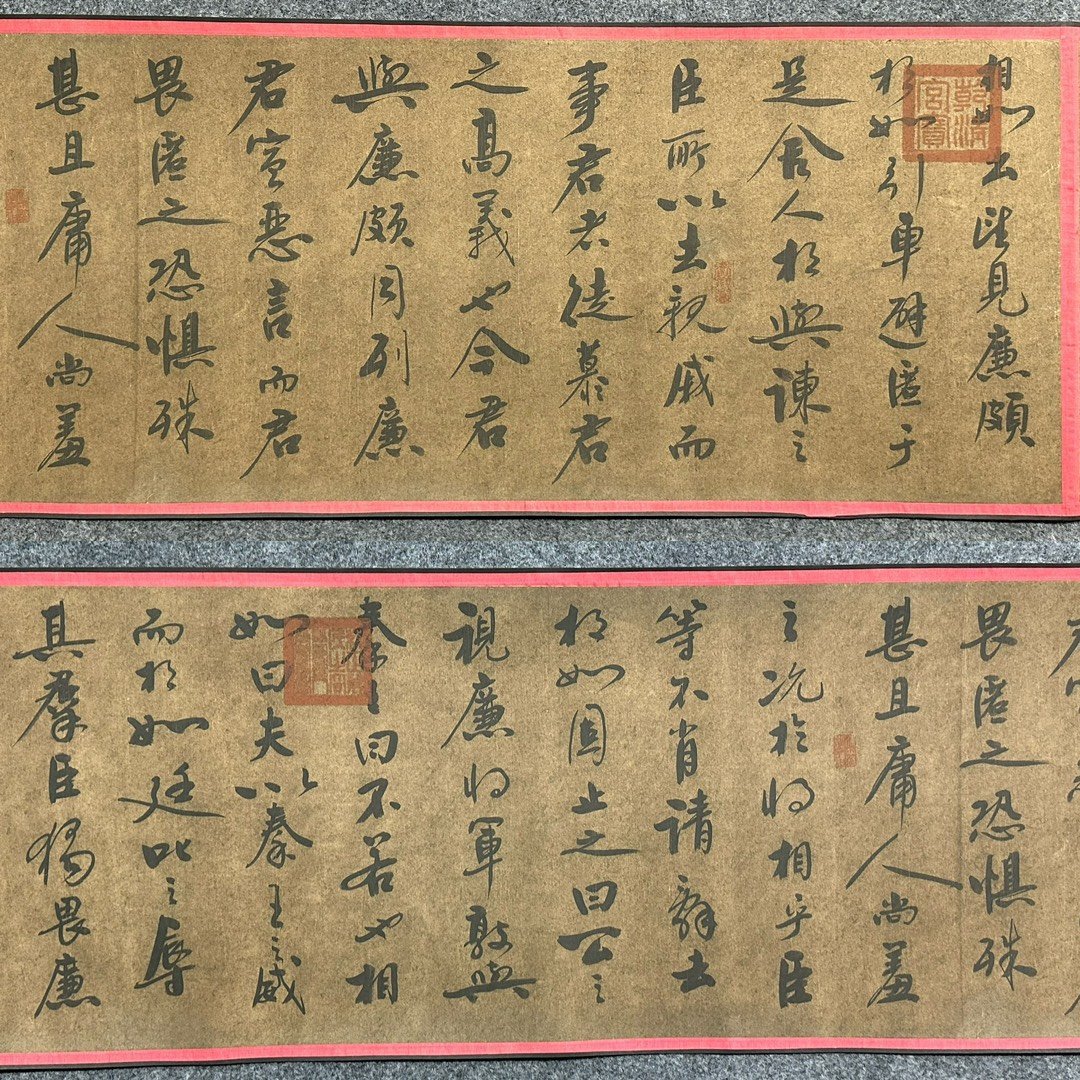 相如出望見廉頗
相如引車避匿于
是舍人相與諫之
臣所以去親戚而
事君者徒慕君
之高義也今君
與廉頗同列廉
君宣惡言而君
畏匿之恐懼殊
甚且庸人尚羞
畏匿之恐懼殊
甚且庸人尚羞
之況於将相乎臣
等不肖請辭去
相如固止之曰公之
視廉将軍孰與
秦王曰不若也相
如曰夫以秦王之威
而相如廷叱之辱
其羣臣獨畏廉
乾清宮寶